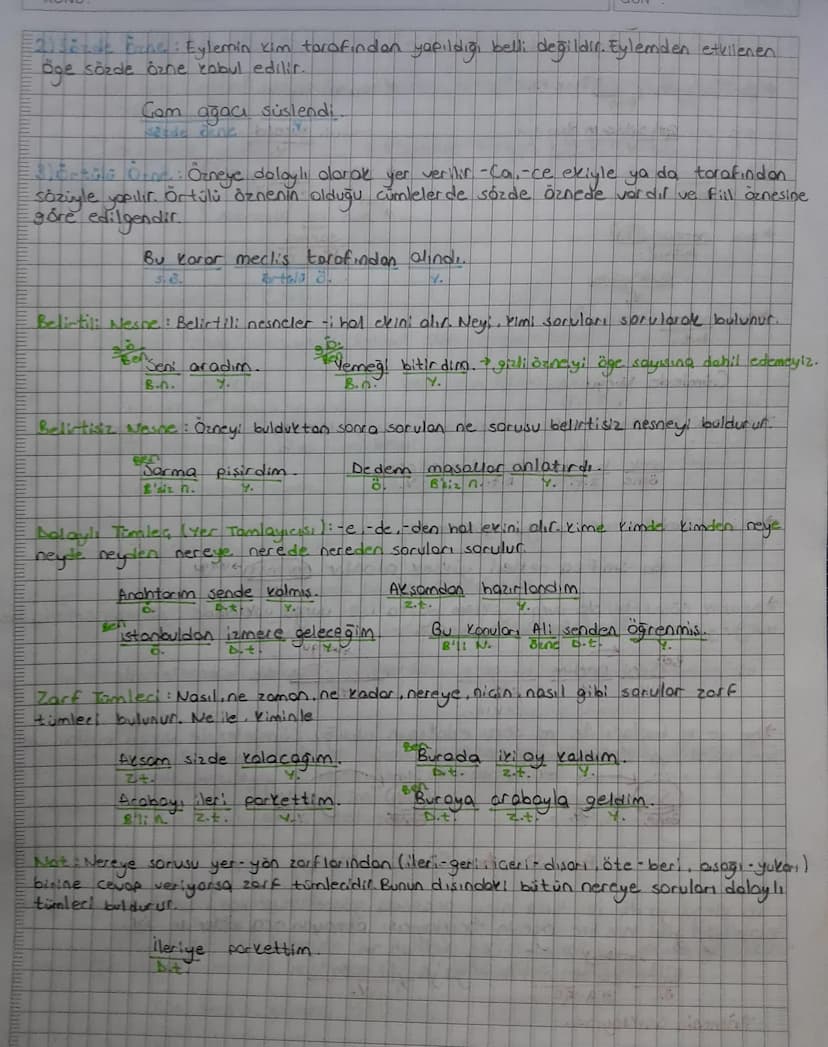 2) Sözde Özne: Eylemin kim tarafından yapıldığı belli değildir. Eylemden etkilenen
öge sözde özne kabul edilir.
Çam ağacı süslendi.
sözde özne Y.
3) Örtülü Özne: Özneye dolaylı olarak yer verilir -Ca,-ce ekiyle ya da tarafından
sözüyle yapılır. Örtülü öznenin olduğu cümlelerde sözde öznede vardır ve fiil öznesine
göre edilgendir.
Bu karar meclis tarafından alındı.
S.ö. örtülü ö. Y.
Belirtili Nesne: Belirtili nesneler -i hal ekini alır. Neyi, kimi soruları sorularak bulunur.
g.ö. g.ö.
Ben Seni aradım. Ben Yemeği bitirdim. → gizli özneyi öge sayısına dahil edemeyiz.
B.n. Y. B.n. Y.
Belirtisiz Nesne: Özneyi bulduktan sonra sorulan ne sorusu belirtisiz nesneyi buldurur.
Ben Sarma pişirdim. Dedem masallar anlatırdı.
B'siz n. Y. Ö. B'siz n. Y.
Dolaylı Tümleç (Yer Tamlayıcısı): -e, -de, -den hal ekini alır. Kime kimde kimden neye
neyde neyden nereye nerede nereden soruları sorulur.
Anahtarım sende kalmış. Akşamdan hazırlandım
Ö. D.t. Y. Z.t. Y.
Sen İstanbuldan izmere geleceğim Bu konuları Ali senden öğrenmiş.
Ö. D.t. Y. B'li N. Özne D.t. Y.
Zarf Tümleci: Nasıl, ne zaman, ne kadar, nereye, niçin, nasıl gibi sorular zarf
tümleci bulunur. Ne ile, kiminle
Akşam sizde kalacağım. Ben Burada iki ay kaldım.
Z.t. Y. D.t. Z.t. Y.
Arabayı ileri parkettim. Ben Buraya arabayla geldim.
B'li n. Z.t. Y. D.t. Z.t. Y.
Not: Nereye sorusu yer-yön zarflarından (ileri-geri, içeri-dışarı, öte-beri, aşağı-yukarı)
birine cevap veriyorsa zarf tümlecidir. Bunun dışındaki bütün nereye soruları dolaylı
tümleci buldurur.
ileriye parkettim.
D.t.